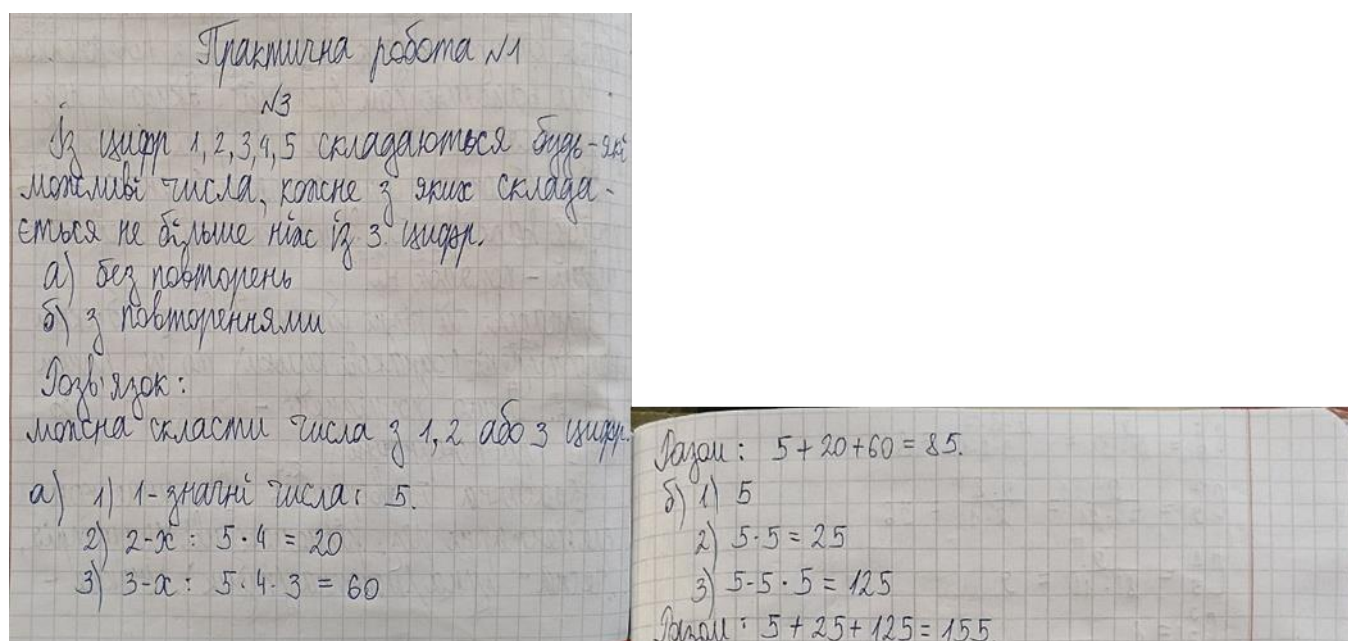 Практична робота №1
№3
Із цифр 1, 2, 3, 4, 5 складаються будь-які
можливі числа, кожне з яких склада-
ється не більше ніж із 3 цифр.
а) без повторень
б) з повтореннями
Розв'язок:
можна скласти числа з 1, 2 або 3 цифр.
а) 1) 1-значні числа: 5.
2) 2-х : 5·4 = 20
3) 3-х : 5·4·3 = 60
Разом : 5 + 20 + 60 = 85.
б) 1) 5
2) 5·5 = 25
3) 5·5·5 = 125
Разом : 5 + 25 + 125 = 155